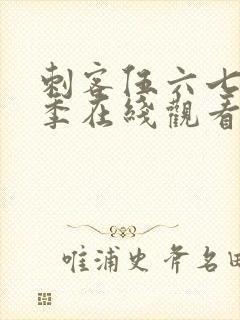 刺客伍六七
季在綫觀看
唯浦史斧名田